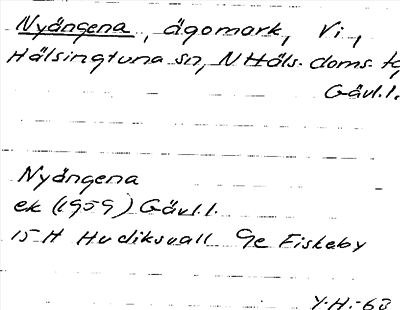 Nyängena, ägomark, Vi,
Hälsingtuna sn, N Häls. doms. tg
Gävl.l.
Nyängena
ek (1959) Gävl.l.
15 H Hudiksvall 9e Fiskeby
Y.H.-63